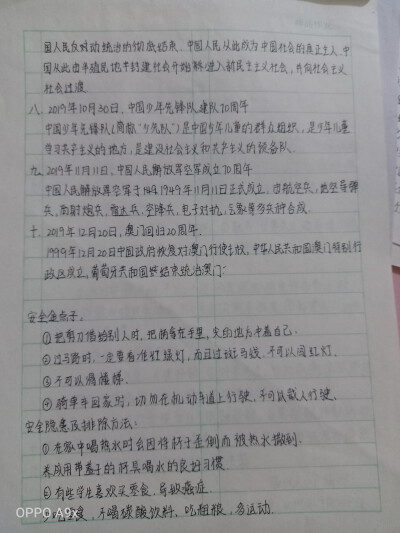 国人民反对动统治的彻底结束,中国人民从此成为中国社会的真正主人,中
国从此由半殖民地半封建社会开始进入新民主主义社会,并向社会主义
社会过渡
八、2019年10月30日、中国少年先锋队建队70周年
中国少年先锋队(简称"少先队")是中国少年儿童的群众组织,是少年儿童
学习共产主义的地方,是建设社会主义和共产主义的预备队.
九、2019年11月11日,中国人民解放军空军成立70周年
中国人民解放军空军于1949年11月11日正式成立,由航空兵,地空导弹
兵,高射炮兵,雷达兵,空降兵,电子对抗,气象等多兵种合成.
十、2019年12月20日,澳门回归20周年.
1999年12月20日中国政府恢复对澳门行使主权,中华人民共和国澳门特别行
政区成立,葡萄牙共和国结束统治澳门
安全金点子.
①把剪刀借给别人时,把柄拿在手里,尖的地方冲着自己.
②过马路时,一定要看准红绿灯,而且过斑马线,不可以闯红灯.
③不可以滑滑梯.
④骑单车回家时,切勿在机动车道上行驶,不可以载人行驶.
安全隐患及排除方法:
①在家中喝热水时会因将杯子歪倒而被热水撒到.
来成用带盖子的杯具喝水的良好习惯
②有些学生喜欢买零食,导致癌症.
食,不喝碳酸饮料,吃粗粮,多运动.
OPPO A9x